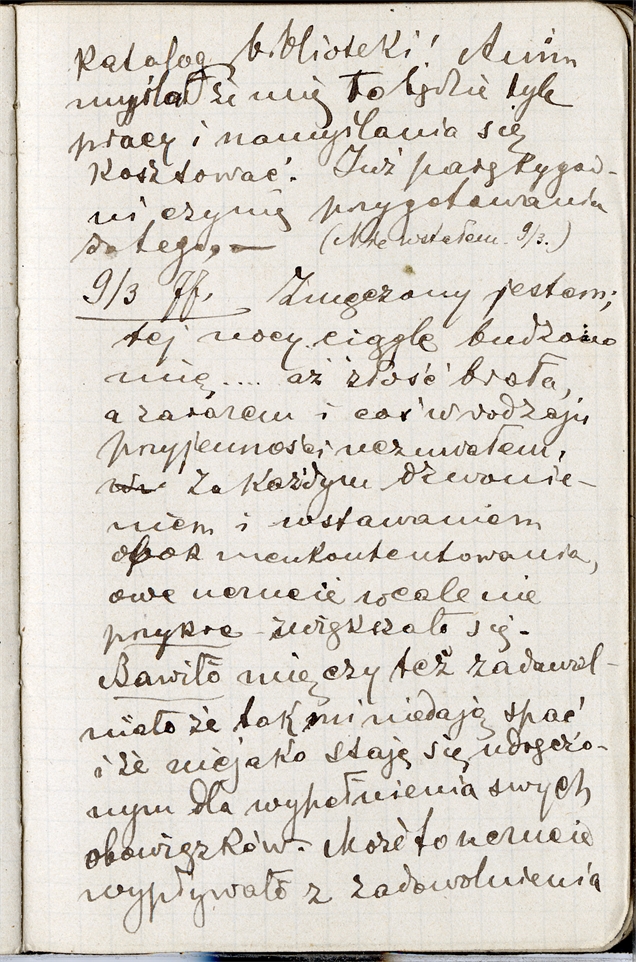 katalog biblioteki! Anim
myślał że mię to będzie tyle
pracy i namyślania się
kosztować. Już parę tygod-
ni czynię przygotowania
do tego, —
(Nie wstałem 9/3.)
9/3 ff. Zmęczony jestem;
tej nocy ciągle budzono
mię.... aż złość brała,
a zarazem i coś w rodzaju
przyjemności uczuwałem,
Za każdym dzwonie-
niem i wstawaniem
obok nieukontentowania,
owe uczucie wcale nie
przykre zwiększało się.
Bawiło mię czy też zadawal-
niało że tak mi niedają spać
i że niejako staję się udręczo-
nym dla wypełnienia swych
obowiązków. Może to uczucie
wypływało z zadowolnienia